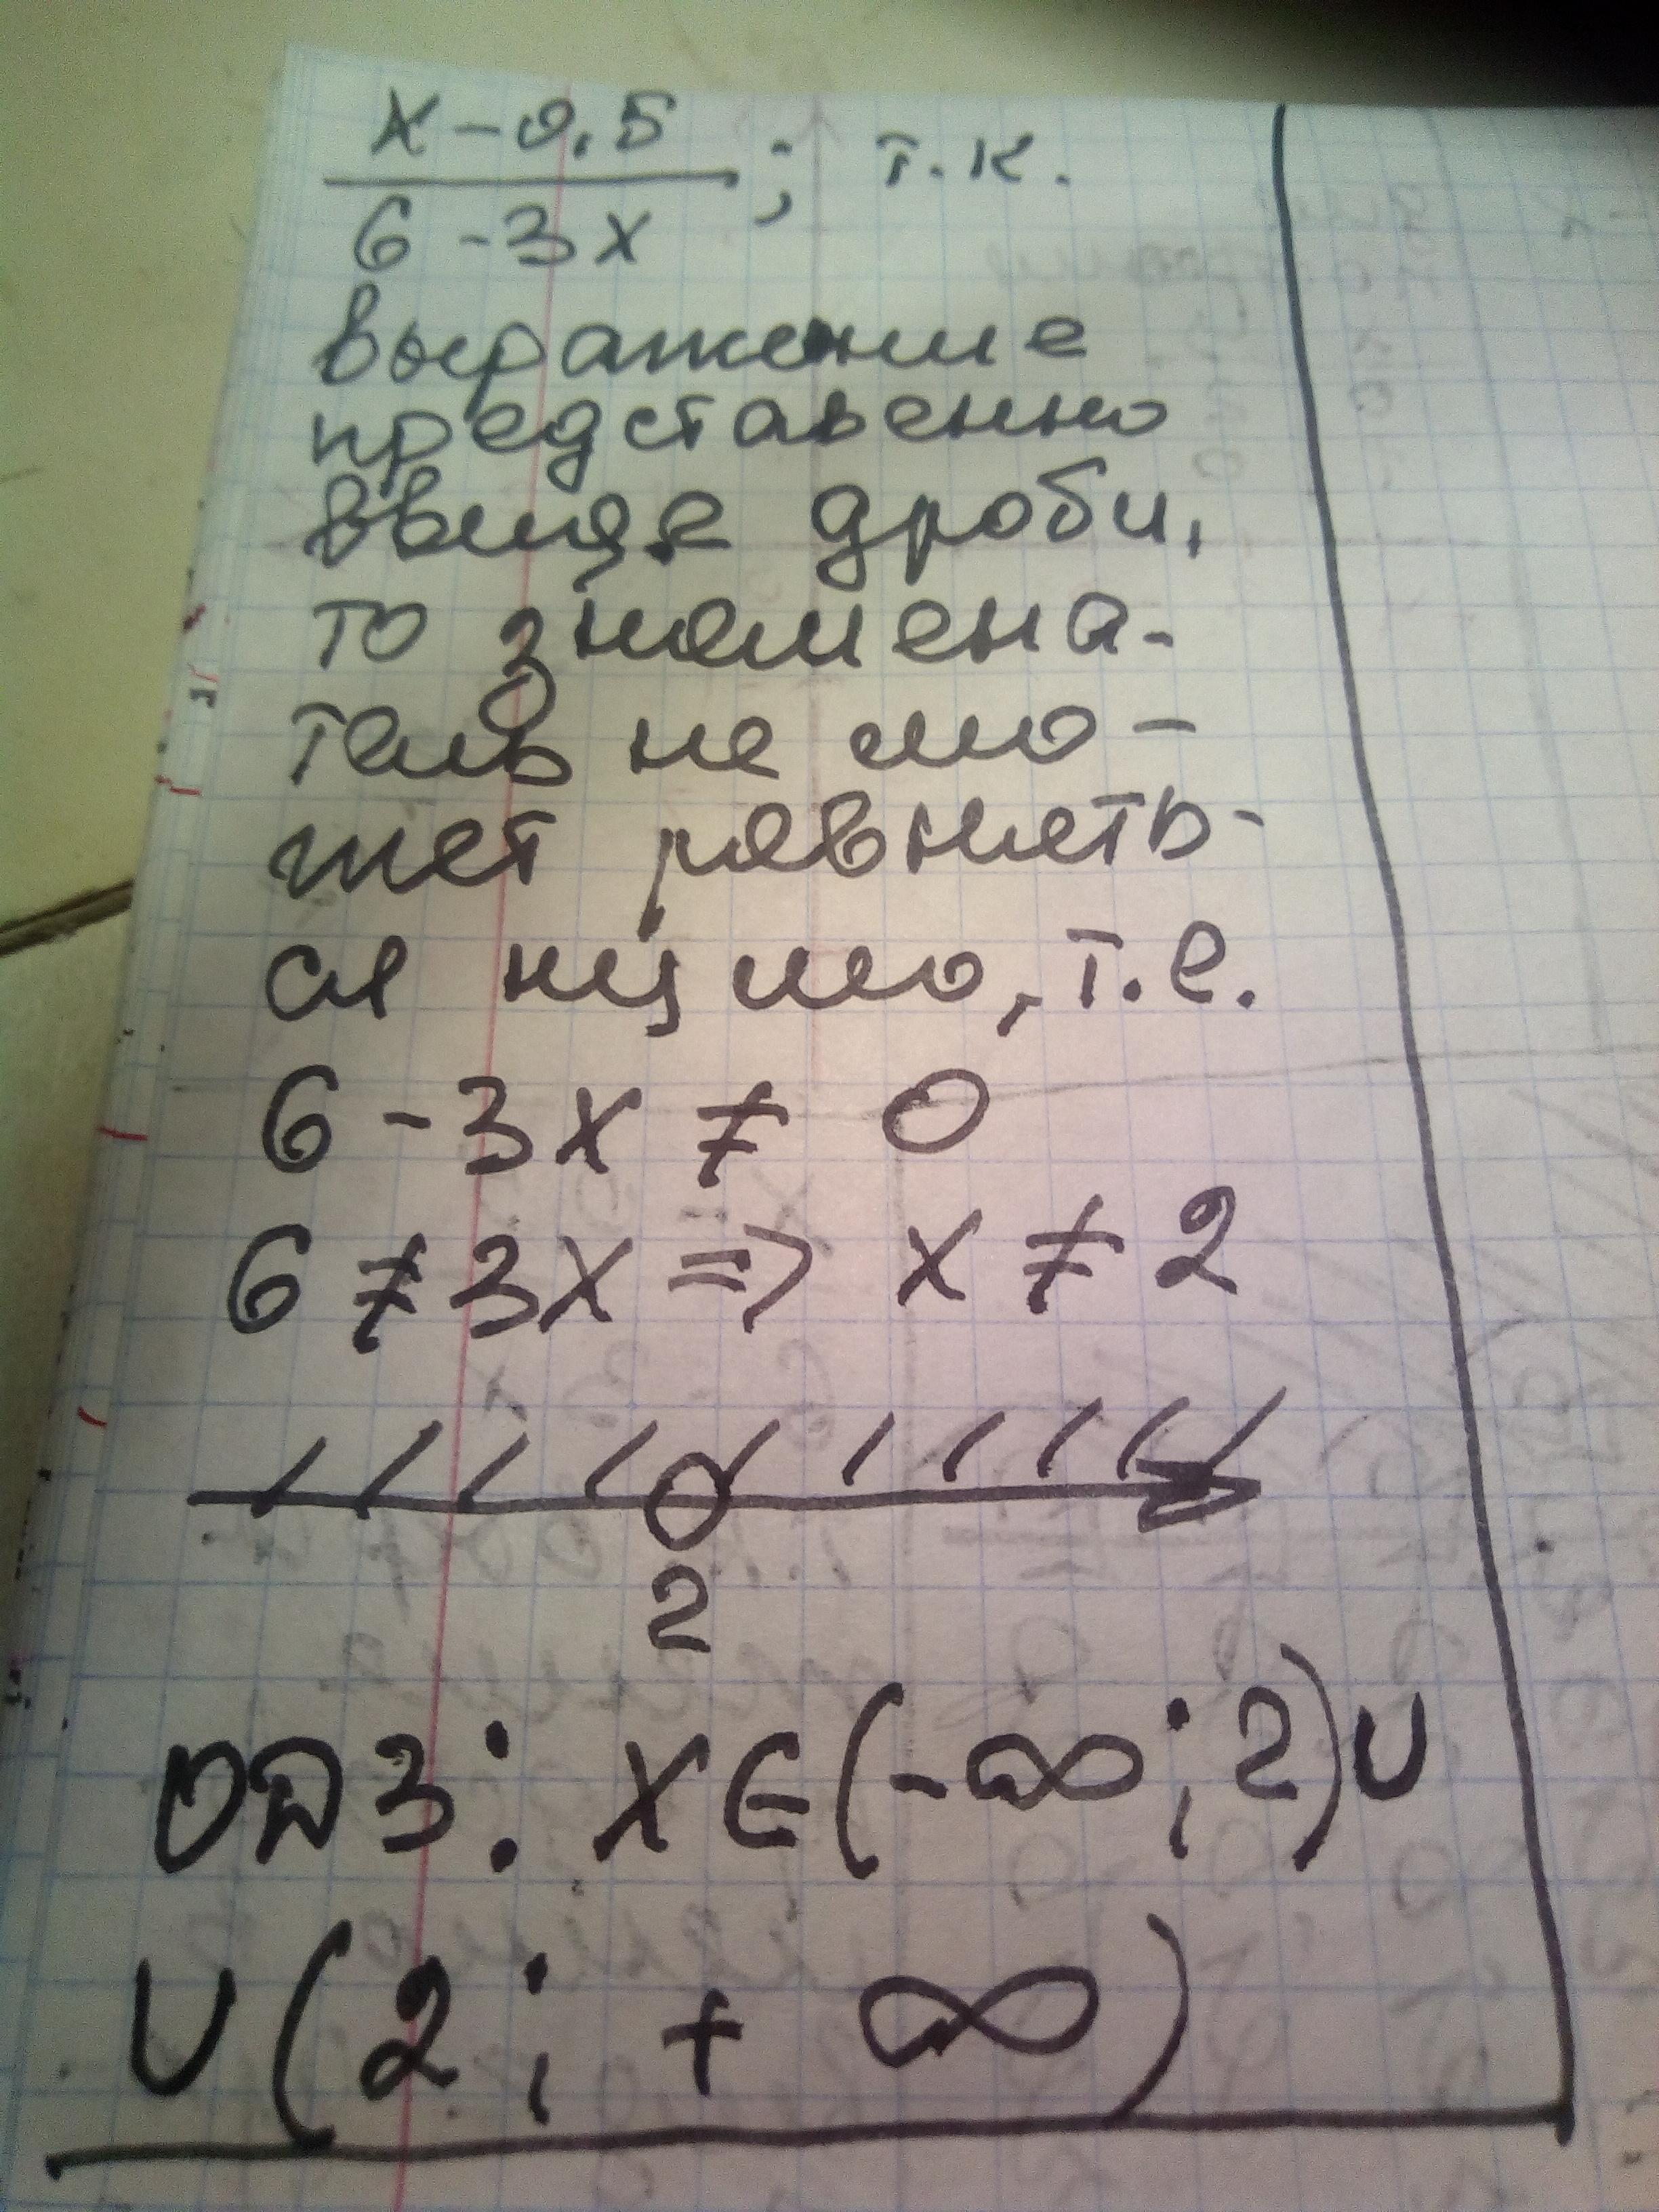 x-0,5
6-3x ; т.к.
выражение
представенно
ввиде дроби,
то знамена-
тель не мо-
жет равнять-
ся нулю, т.е.
6-3x ≠ 0
6 ≠ 3x => x ≠ 2
2
ОДЗ: x∈(-∞;2)∪
∪(2;+∞)